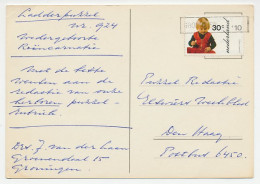 Ladderpuzzel
nr. 924
Wedergeboorte
Reïncarnatie
Met de beste
wensen aan de
redactie van onze
herboren puzzel-
rubriek.
Drs. J. van der Laan
Gronendaal 15
Groningen
30c +10
nederland
Puzzel Redactie
Elseviers Weekblad
Den Haag
Postbus 6450.